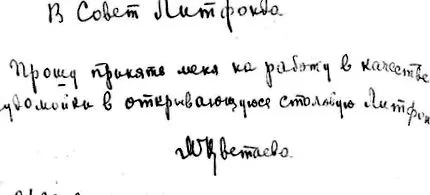 В Совет Литфонда.
Прошу принять меня на работу в качестве
судомойки в открывающуюся столовую Литфон
МЦветаева.